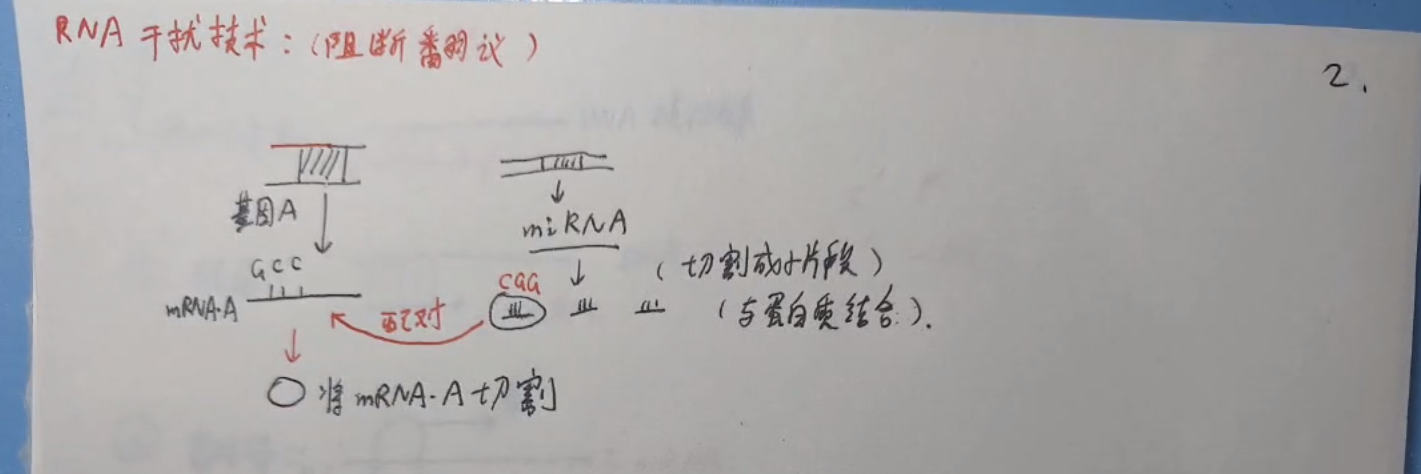 RNA干扰技术：(阻断翻译)
2.
基因A
miRNA
GCC
(切割成小片段)
CGG
mRNA·A
配对
(与蛋白质结合).
将mRNA·A切割